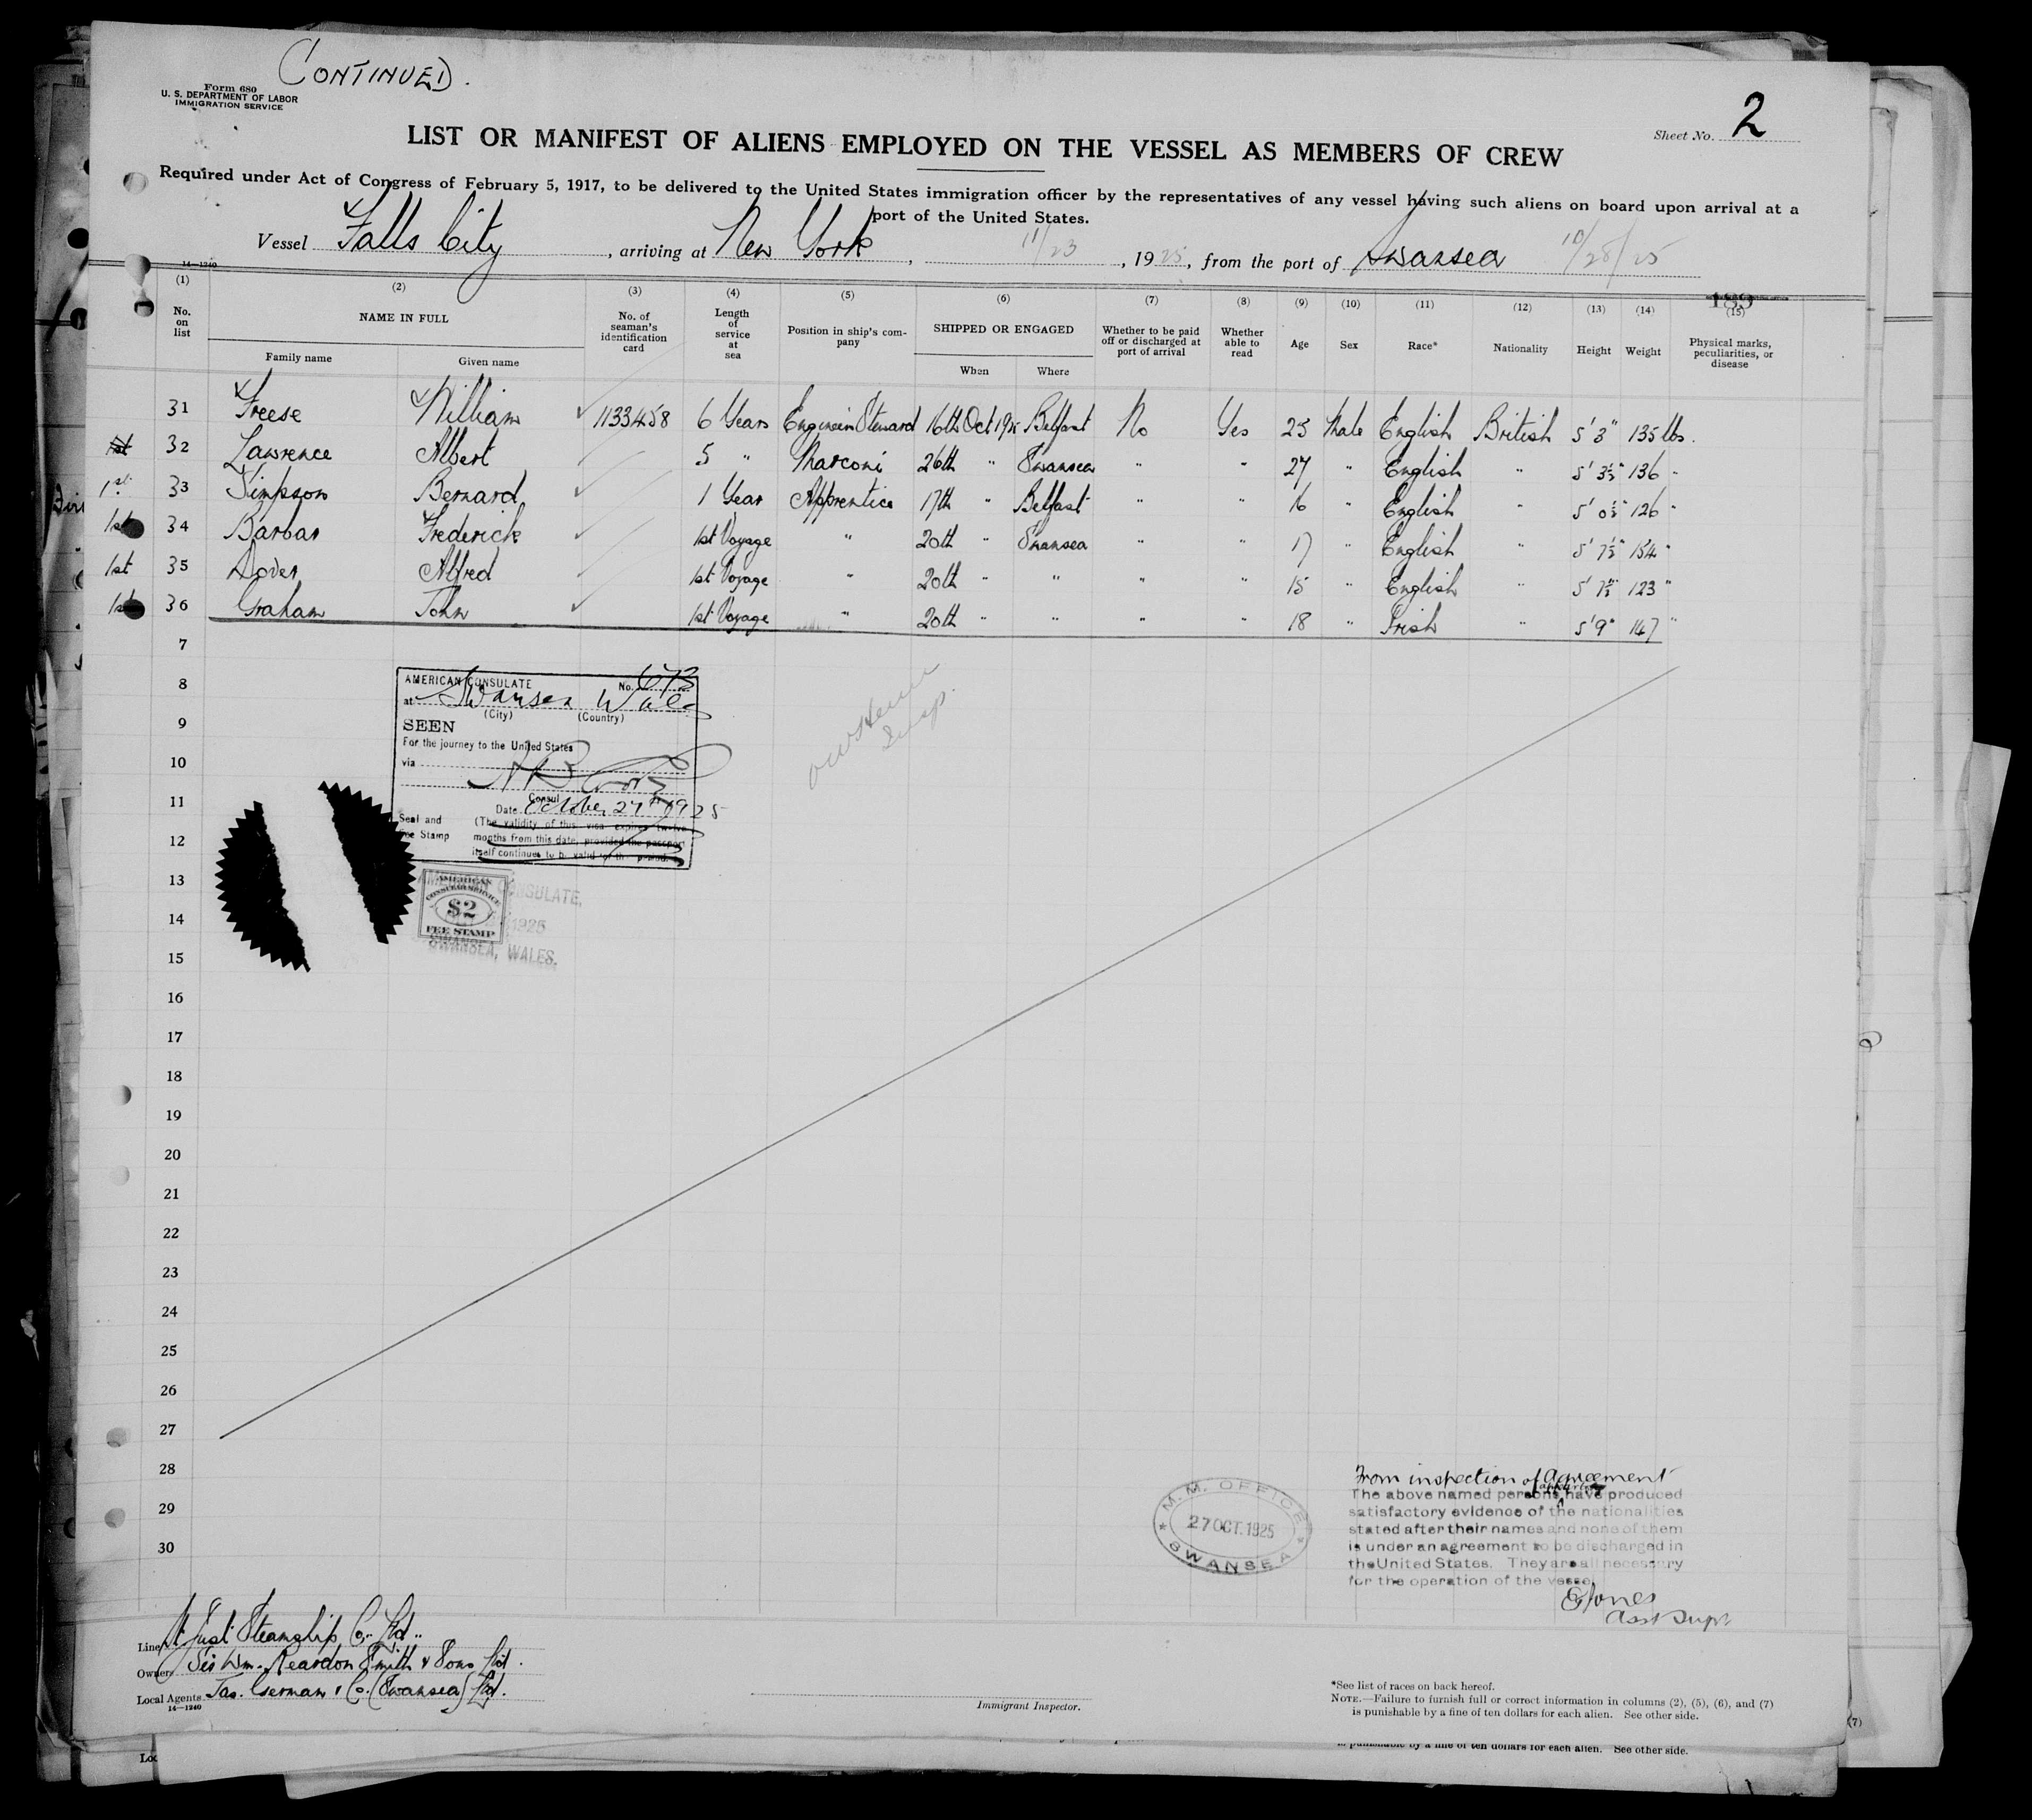 CONTINUED.
Form 680
U. S. DEPARTMENT OF LABOR
IMMIGRATION SERVICE
Sheet No. 2
LIST OR MANIFEST OF ALIENS EMPLOYED ON THE VESSEL AS MEMBERS OF CREW
Required under Act of Congress of February 5, 1917, to be delivered to the United States immigration officer by the representatives of any vessel having such aliens on board upon arrival at a
port of the United States.
Vessel Falls City, arriving at New York, 11/23, 1925, from the port of Swansea 10/28/25
14—1240
189
(1) (2) (3) (4) (5) (6) (7) (8) (9) (10) (11) (12) (13) (14) (15)
No. on list NAME IN FULL Family name Given name No. of seaman's identification card Length of service at sea Position in ship's company SHIPPED OR ENGAGED When Where Whether to be paid off or discharged at port of arrival Whether able to read Age Sex Race* Nationality Height Weight Physical marks, peculiarities, or disease
31 Freese William 1133458 6 Years Engineers Steward 16th Oct 1925 Belfast No Yes 25 Male English British 5' 3" 135 lbs.
1st 32 Lawrence Albert 5 " Marconi 26th " Swansea " " 27 " English " 5' 3½" 136 "
1st 33 Simpson Bernard 1 Year Apprentice 17th " Belfast " " 16 " English " 5' 0½" 126 "
1st 34 Barbar Frederick 1st Voyage " 20th " Swansea " " 17 " English " 5' 7½" 154 "
1st 35 Dover Alfred 1st Voyage " 20th " " " " 15 " English " 5' 7½" 123 "
1st 36 Graham John 1st Voyage " 20th " " " " 18 " Irish " 5' 9" 147 "
7
8
9
10
11
12
13
14
15
16
17
18
19
20
21
22
23
24
25
26
27
28
29
30
AMERICAN CONSULATE No. 673
at Swansea Wales
(City) (Country)
SEEN
For the journey to the United States
via
Consul
Date October 27th 1925
Seal and
Fee Stamp
(The validity of this visa expires twelve
months from this date, provided the passport
itself continues to be valid for that period.)
AMERICAN
CONSULAR SERVICE
$2
FEE STAMP
AMERICAN CONSULATE,
1925
SWANSEA, WALES.
M. M. OFFICE
27 OCT. 1925
SWANSEA
From inspection of Agreement
The above named persons have produced
satisfactory evidence of the nationalities
stated after their names and none of them
is under an agreement to be discharged in
the United States. They are all necessary
for the operation of the vessel
E Jones
Asst Supt
Line St Just Steamship Co. Ltd.
Owners Sir Wm. Reardon Smith & Sons Ltd.
Local Agents Jas. German & Co. (Swansea) Ltd.
14—1240
Immigrant Inspector.
*See list of races on back hereof.
NOTE.—Failure to furnish full or correct information in columns (2), (5), (6), and (7)
is punishable by a fine of ten dollars for each alien. See other side.
(7)
is punishable by a fine of ten dollars for each alien. See other side.